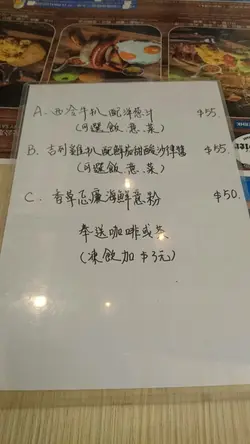 A. 西冷牛扒配洋葱汁 $55
(可選飯．意．菜)
B. 吉列雞扒配鮮茄甜酸沙律醬 $55
(可選飯．意．菜)
C. 香草忌廉海鮮意粉 $50.
奉送咖啡或茶
(凍飲加$3元)